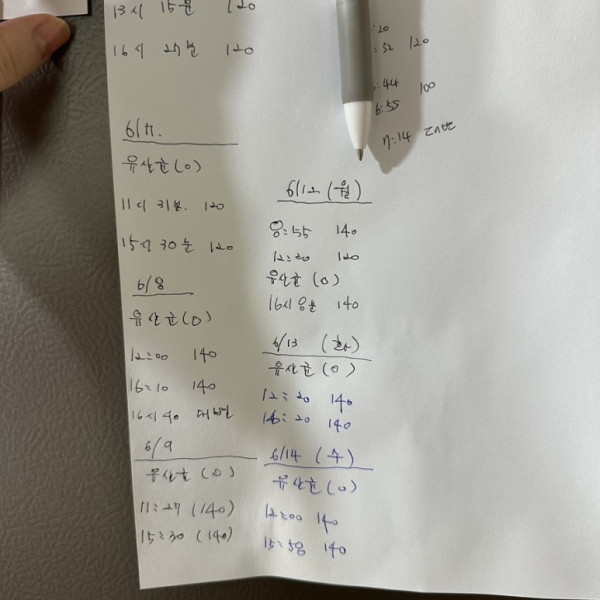 13시 15분 120
16시 27분 120
6/7.
유산균(0)
11시 31분. 120
15시 30분 120
6/8
유산균(0)
12:00 140
16:10 140
16시 40 대변
6/9
유산균(0)
11:27 (140)
15:30 (140)
:20
:32 120
:44 100
6:55
7:14 대변
6/12 (월)
8:55 140
12:20 120
유산균(0)
16시 8분 140
6/13 (화)
유산균(0)
12:20 140
16:20 140
6/14 (수)
유산균(0)
12:00 140
15:58 140